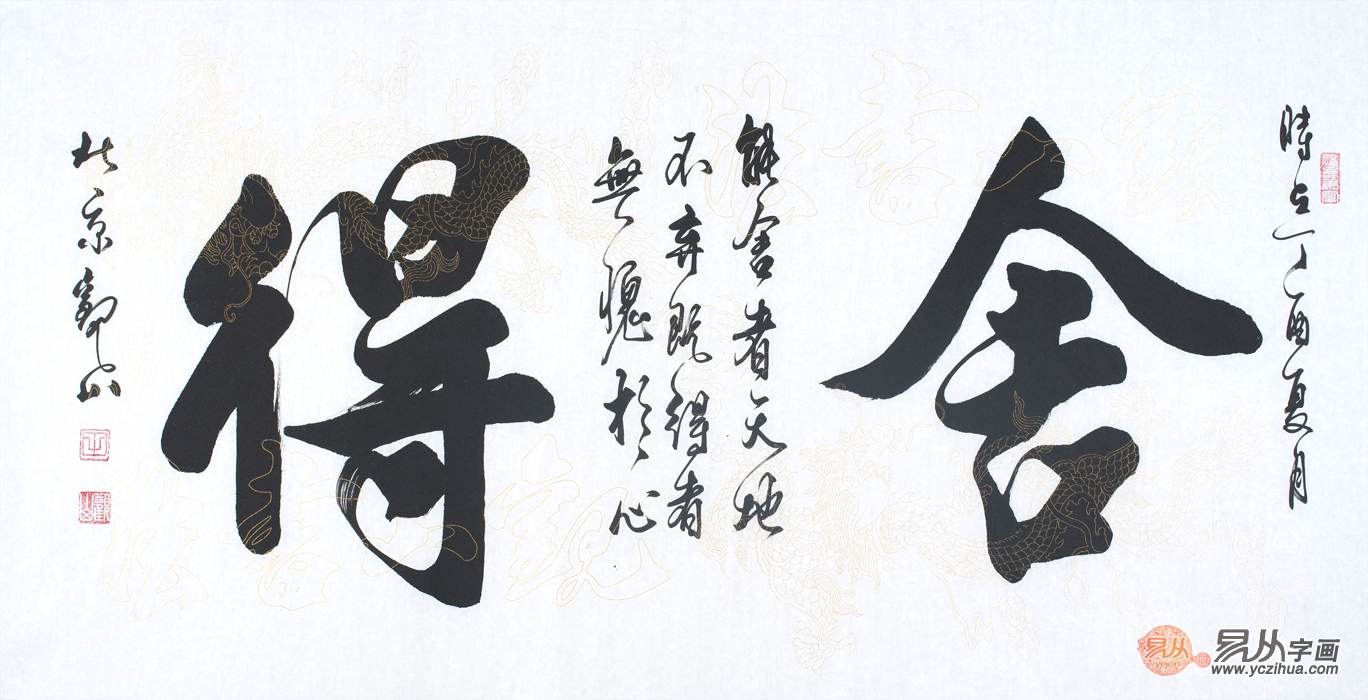 時在丁酉夏月
舍
能舍者天地
不弃既得者
無愧於心
得
北京觀山
觀山
易从字画
www.yczihua.com